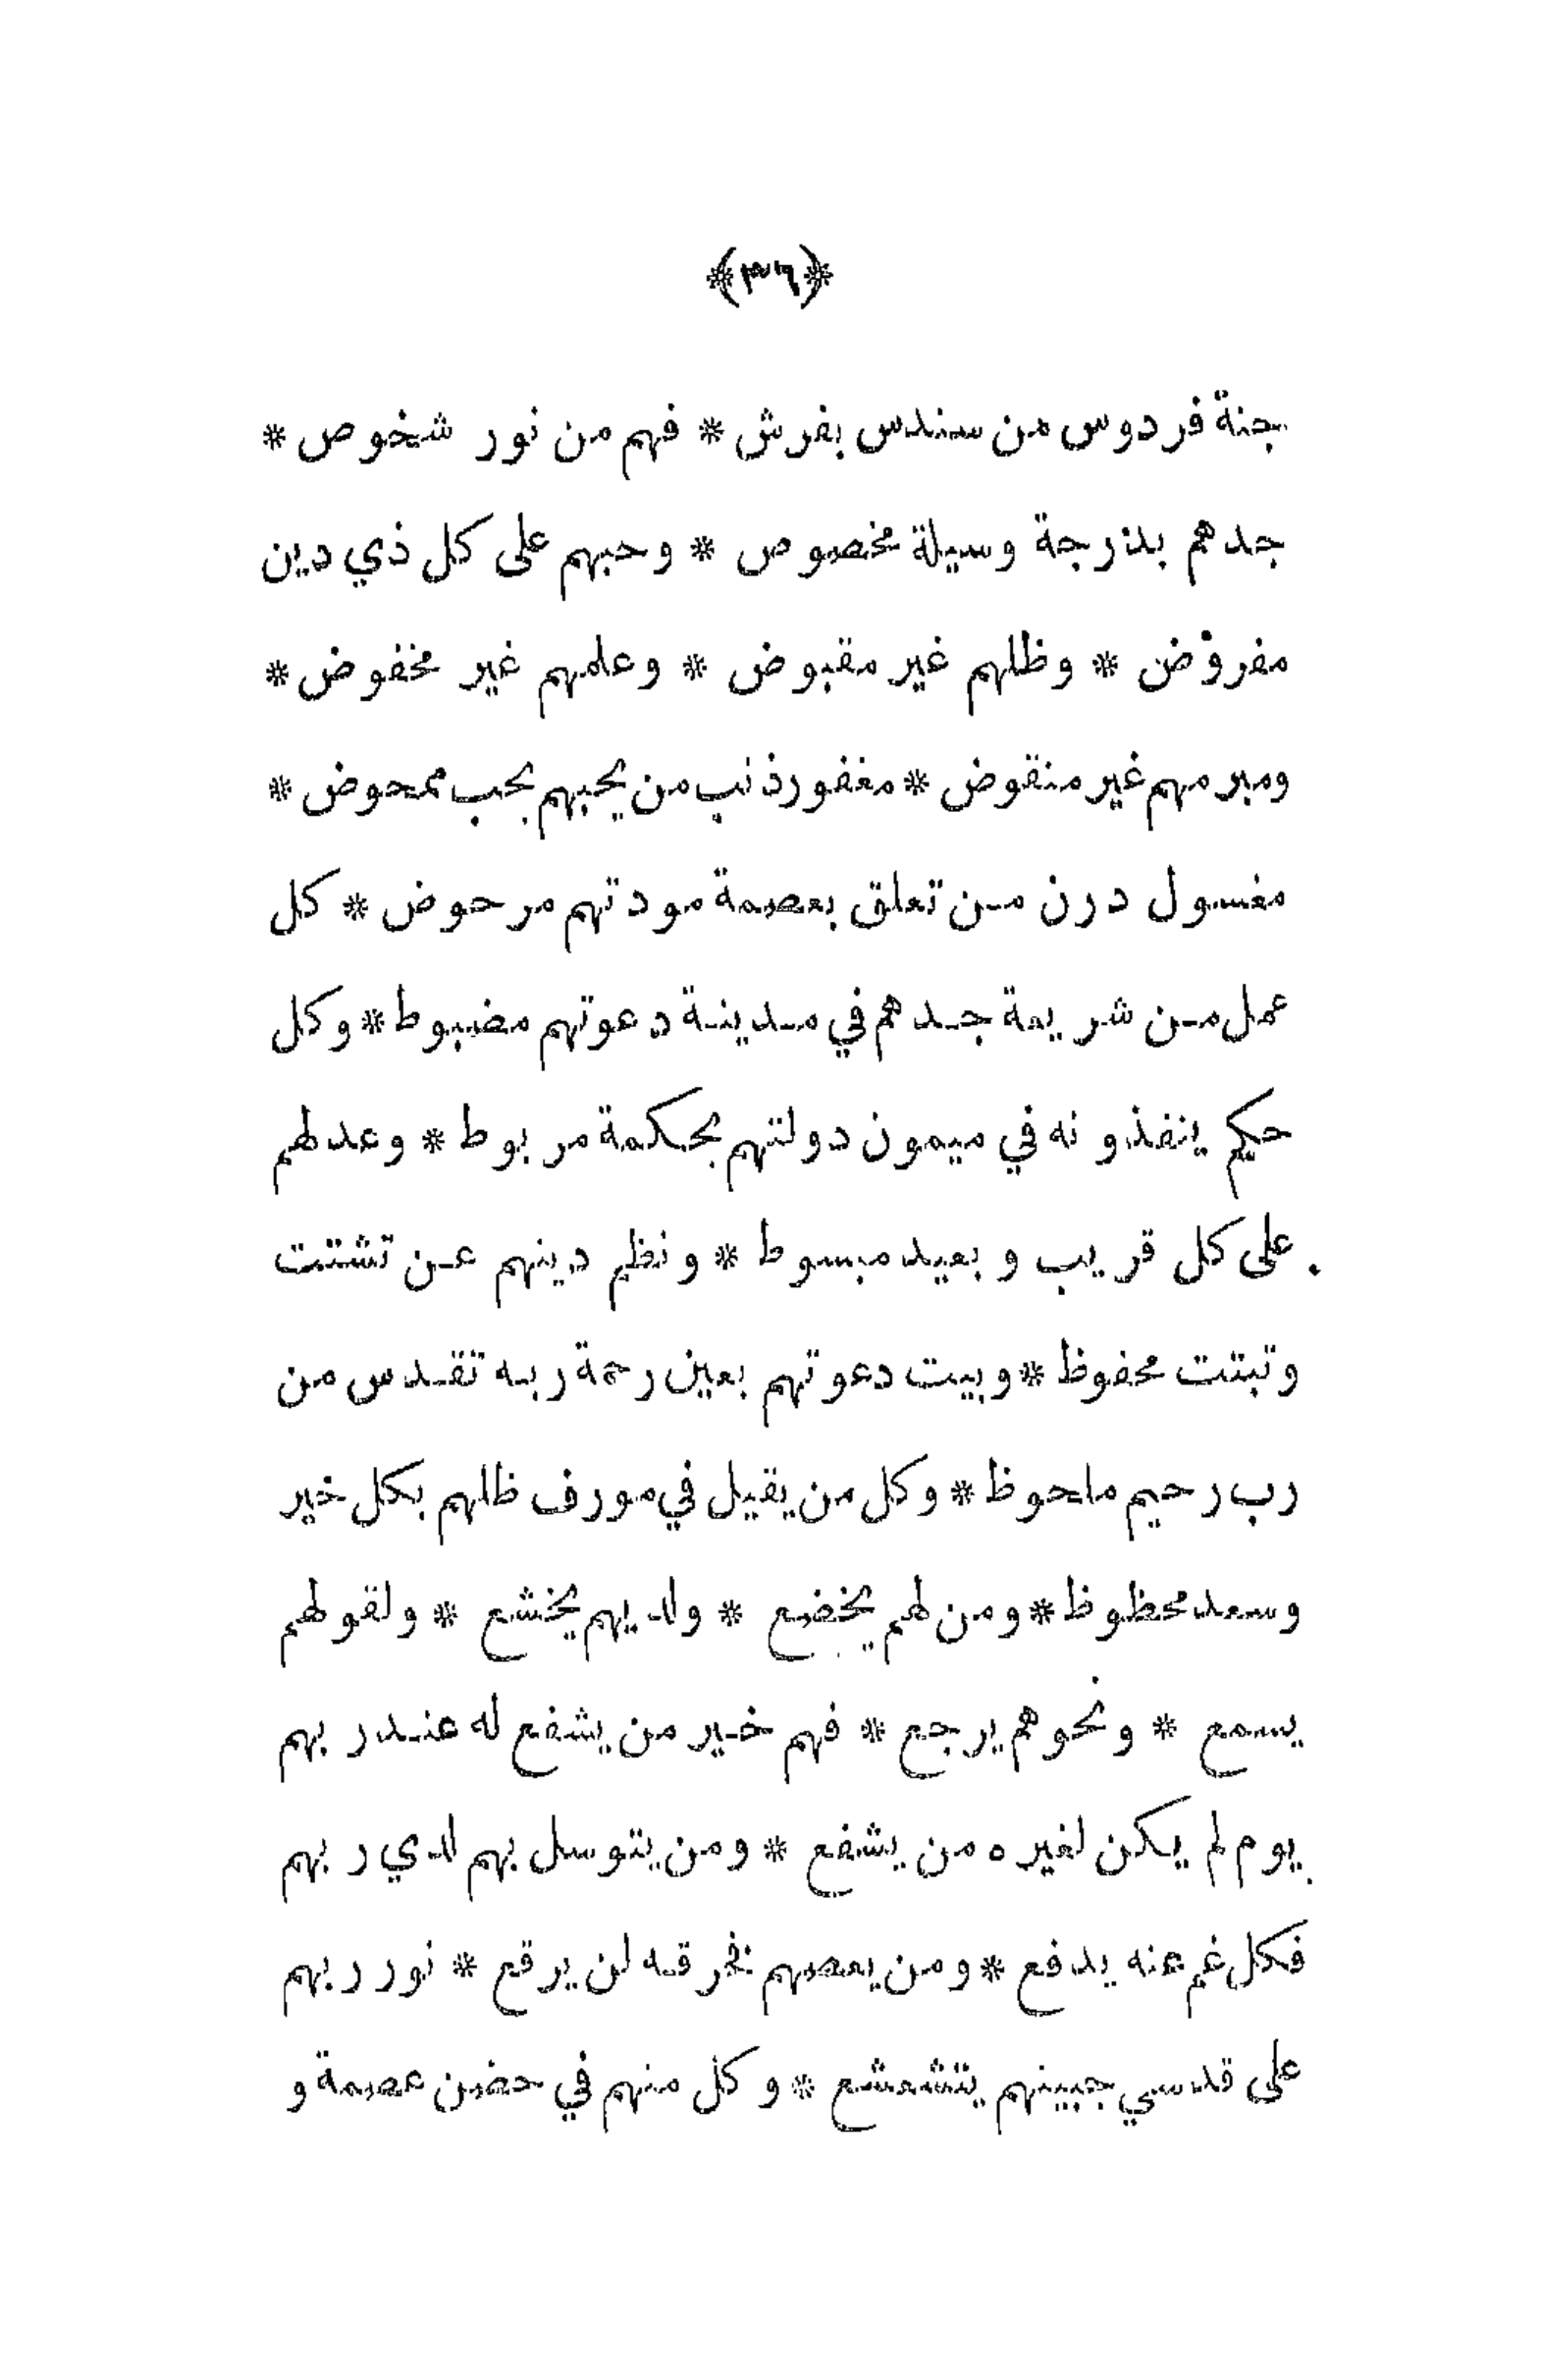 ﴿٣٦﴾
جنة فردوس من سندس بفرش * فهم من نور شخوص *
جدهم بدرجة وسيلة مخصوص * وحبهم على كل ذي دين
مفروض * وظلهم غير مقبوض * وعلمهم غير مخفوض *
ومبرمهم غير منقوض * مغفور ذنب من يحبهم بحب ممحوض *
مغسول درن من تعلق بعصمة مودتهم مرحوض * كل
عمل من شريعة جدهم في مدينة دعوتهم مضبوط * وكل
حكم ينفذونه في ميمون دولتهم بحكمة مربوط * وعدلهم
على كل قريب وبعيد مبسوط * ونظم دينهم عن تشتت
وتبتت محفوظ * وبيت دعوتهم بعين رحمة ربه تقدس من
رب رحيم ملحوظ * وكل من يقيل في مورف ظلهم بكل خير
وسعد محظوظ * ومن لهم يخضع * ولديهم يخشع * ولقولهم
يسمع * ونحوهم يرجع * فهم خير من يشفع له عند ربهم
يوم لم يكن لغيره من يشفع * ومن يتوسل بهم لدي ربهم
فكل غم عنه يدفع * ومن يعصهم فخرقه لن يرقع * نور ربهم
على قدسي جبينهم يتشعشع * وكل منهم في حضن عصمة و